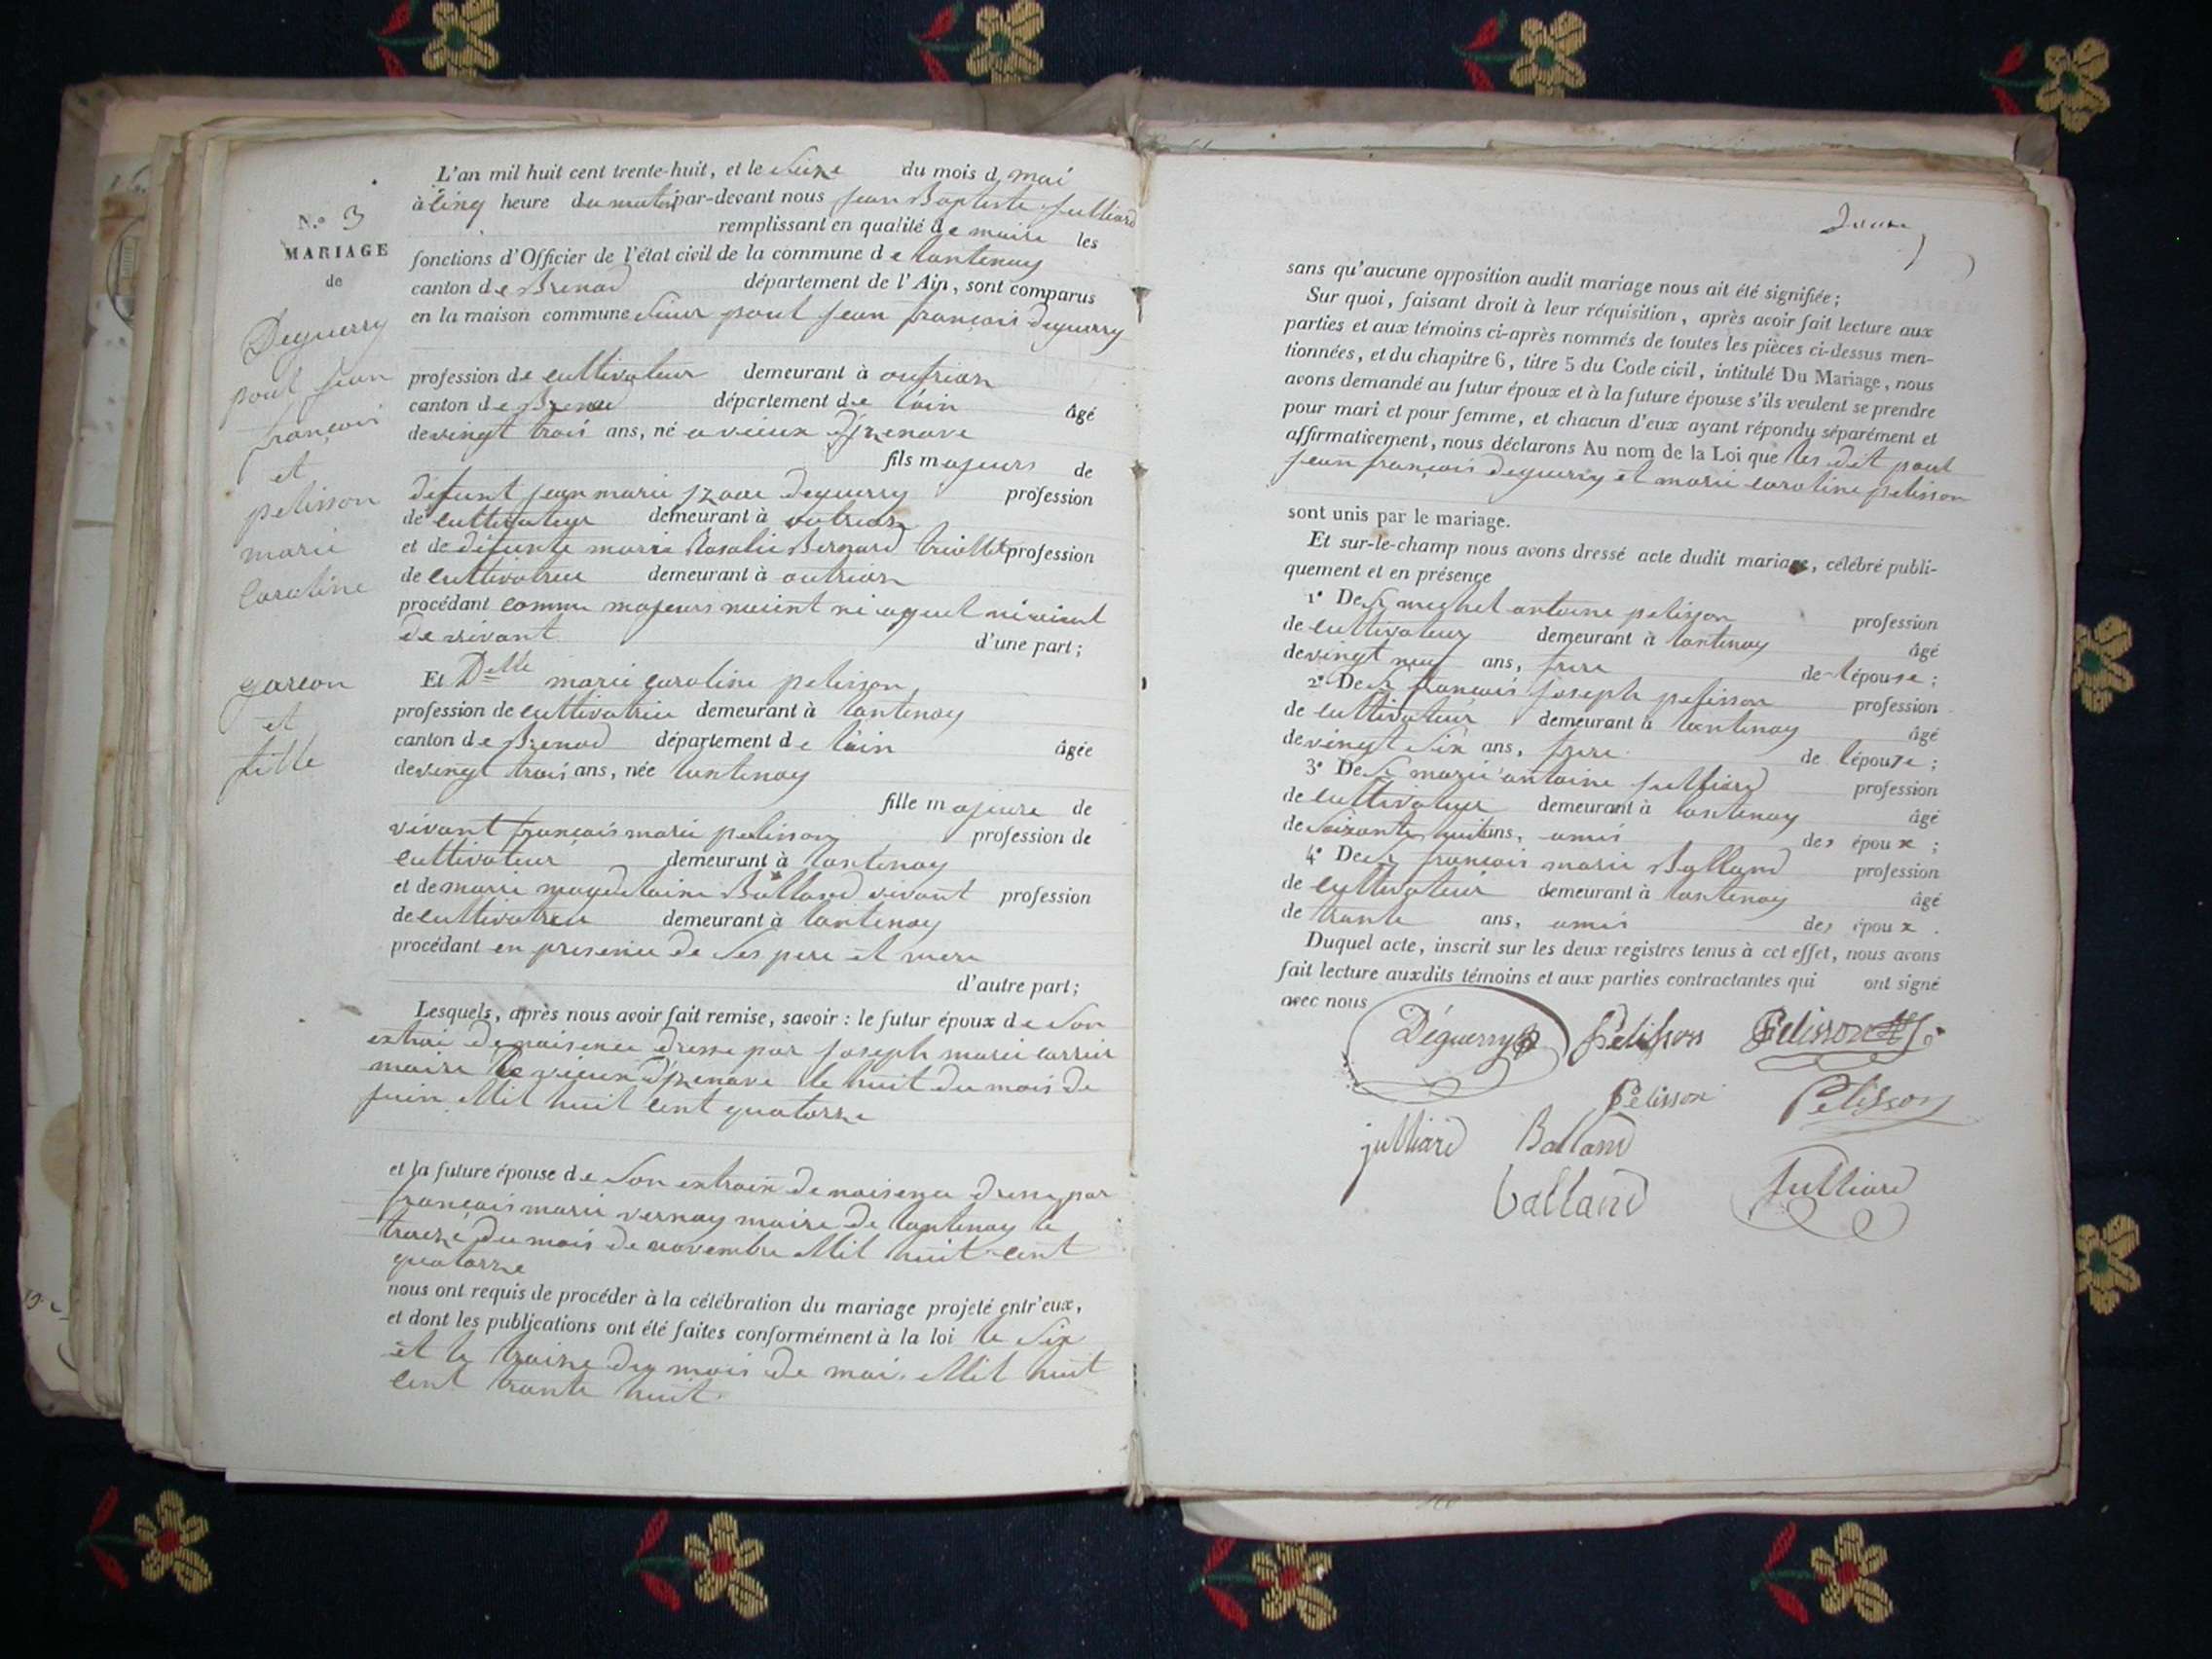 N.º 3
MARIAGE
de
Deguerry
paul jean
françois
et
pelisson
marie
Caroline
garcon
et
fille
L'an mil huit cent trente-huit, et le Seize du mois d mai
à Cinq heure du matin par-devant nous jean Baptiste julliard
remplissant en qualité de maire les
fonctions d'Officier de l'état civil de la commune de lantenay
canton de Brenod département de l'Ain, sont comparus
en la maison commune Sieur paul jean françois deguerry
profession de cultivateur demeurant à outrian
canton de Brenod département de l'ain âgé
de vingt trois ans, né a vieux d'jzenave
fils majeurs de
défunt jean marie deguerry profession
de Cultivateur demeurant à outrian
et de défunte marie Rosalie Bernard profession
de cultivatrice demeurant à outrian
procédant comme majeurs
de vivant d'une part;
Et Delle marie caroline pelisson
profession de cultivatrice demeurant à lantenay
canton de Brenod département de l'ain âgée
de vingt trois ans, née lantenay
fille majeure de
vivant françois marie pelisson profession de
cultivateur demeurant à lantenay
et de marie magdelaine Balland vivant profession
de cultivatrice demeurant à lantenay
procédant en presence de Ses pere et mere
d'autre part;
Lesquels, après nous avoir fait remise, savoir: le futur époux de Son
extrai de naisence dresse par joseph marie carrier
maire de vieux d'jzenave le huit du mois de
juin Mil huit cent quatorze
et la future épouse de Son de naisence dresse par
françois marie vernay maire de lantenay le
traize du mois de novembre Mil huit cent
quatorze
nous ont requis de procéder à la célébration du mariage projeté entr'eux,
et dont les publications ont été faites conformément à la loi le Six
et le traize du mois de mai Mil huit
cent trante huit.
sans qu'aucune opposition audit mariage nous ait été signifiée;
Sur quoi, faisant droit à leur réquisition, après avoir fait lecture aux
parties et aux témoins ci-après nommés de toutes les pièces ci-dessus men-
tionnées, et du chapitre 6, titre 5 du Code civil, intitulé Du Mariage, nous
avons demandé au futur époux et à la future épouse s'ils veulent se prendre
pour mari et pour femme, et chacun d'eux ayant répondu séparément et
affirmativement, nous déclarons Au nom de la Loi que les dit paul
jean françois deguerry et marie caroline pelisson
sont unis par le mariage.
Et sur-le-champ nous avons dressé acte dudit mariage, célébré publi-
quement et en présence
1º De Sr michel antoine pelisson profession
de cultivateur demeurant à lantenay âgé
de vingt neuf ans, frere de lépouse;
2º De Sr françois joseph pelisson profession
de cultivateur demeurant à lantenay âgé
de vingt Six ans, frere de lépouse;
3º De Sr marie antoine julliard profession
de cultivateur demeurant à lantenay âgé
de Soixante huit ans, amis des époux;
4º De Sr françois marie Balland profession
de cultivateur demeurant à lantenay âgé
de trante ans, amis des époux.
Duquel acte, inscrit sur les deux registres tenus à cet effet, nous avons
fait lecture auxdits témoins et aux parties contractantes qui ont signé
avec nous
Déguerry Pelisson Pelisson
Pelisson Pelisson
julliard Balland
balland Julliard